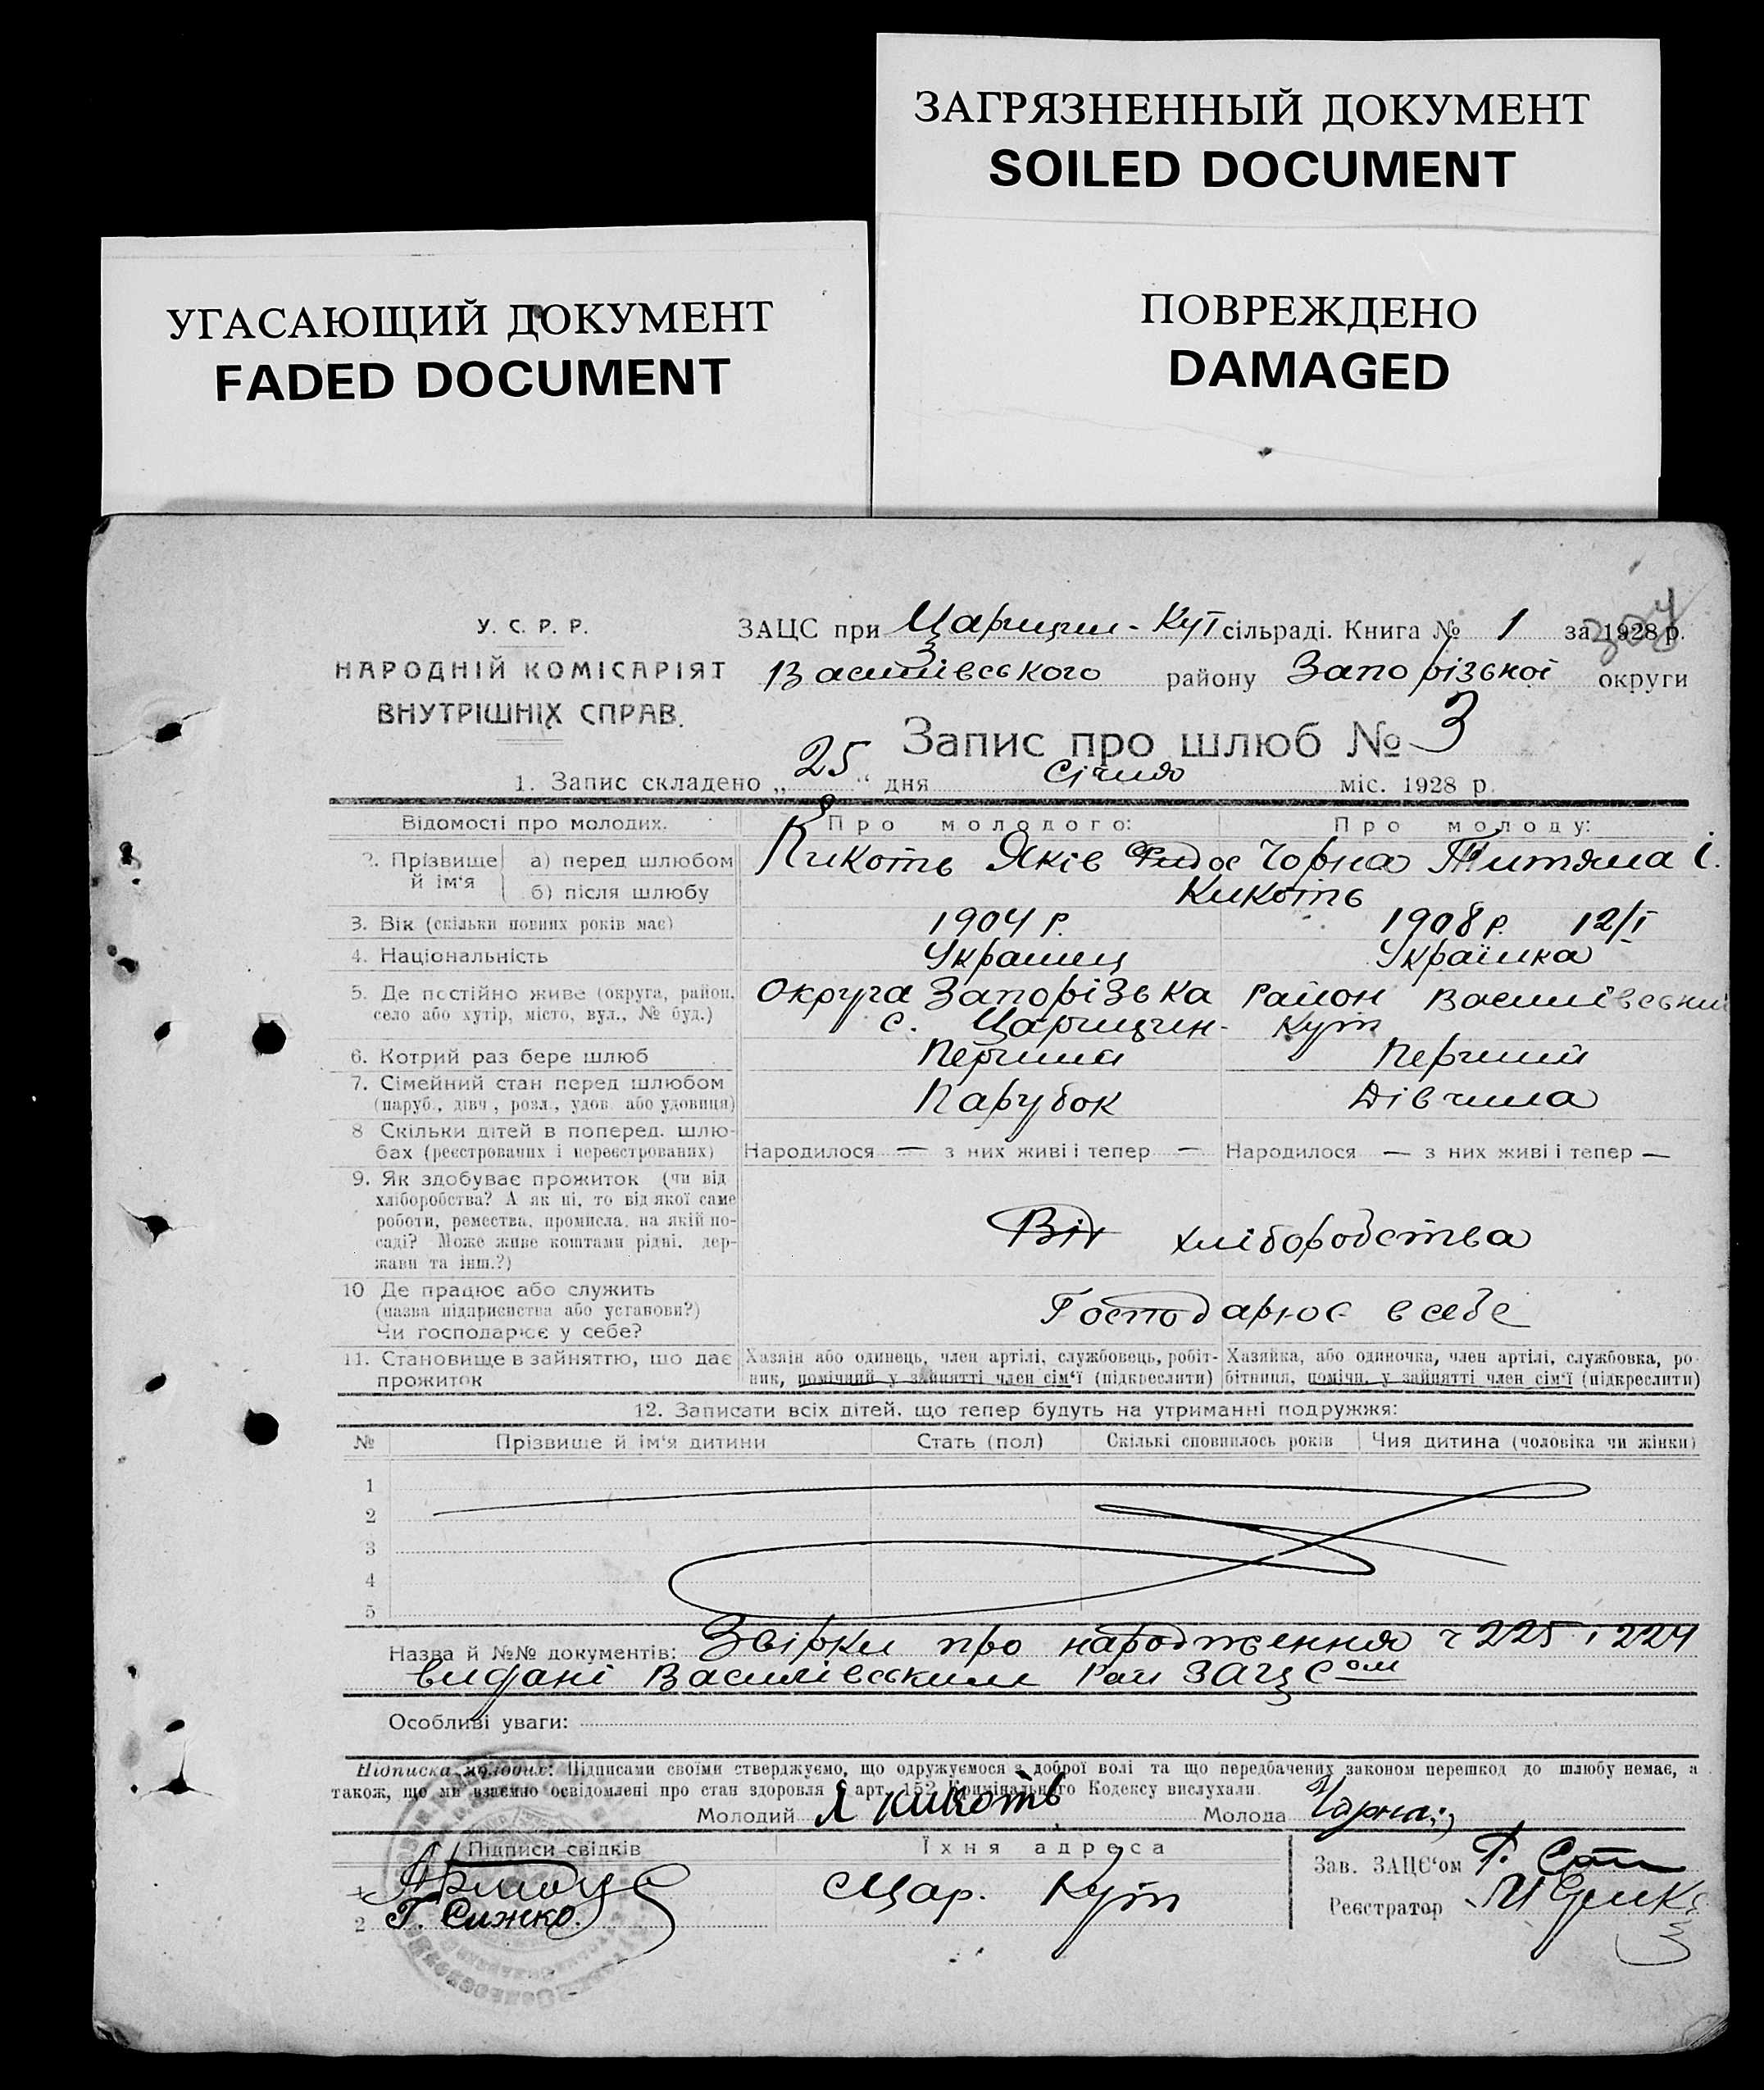 ЗАГРЯЗНЕННЫЙ ДОКУМЕНТ
SOILED DOCUMENT
УГАСАЮЩИЙ ДОКУМЕНТ
FADED DOCUMENT
ПОВРЕЖДЕНО
DAMAGED
У. С. Р. Р.
НАРОДНІЙ КОМІСАРІЯТ
ВНУТРІШНІХ СПРАВ.
ЗАЦС при Царицин-Кут сільраді. Книга № 1 за 1928 р.
Василівського району Запорізької округи
Запис про шлюб № 3
1. Запис складено „25“ дня Січня міс. 1928 р.
Відомості про молодих. Про молодого: Про молоду:
2. Прізвище й ім'я а) перед шлюбом Кикоть Яків Чорна Титяна І.
б) після шлюбу Кикоть
3. Вік (скільки повних років має) 1904 р. 1908 р. 12/I
4. Національність Украинец Українка
5. Де постійно живе (округа, район, Округа Запорізька Район Василівський
село або хутір, місто, вул., № буд.) с. Царицин-Кут
6. Котрий раз бере шлюб Перший Перший
7. Сімейний стан перед шлюбом
(паруб., дівч., розл., удов. або удовиця) Парубок Дівчина
8 Скільки дітей в поперед. шлю-
бах (реєстрованих і нереєстрованих) Народилося — з них живі і тепер — Народилося — з них живі і тепер —
9. Як здобуває прожиток (чи від
хліборобства? А як ні, то від якої саме
роботи, ремества, промисла, на якій по-
саді? Може живе коштами рідні, дер- Від хліборобства
жави та інш.?)
10 Де працює або служить
(назва підприємства або установи?) Господарює в себе
Чи господарює у себе?
11. Становище в зайняттю, що дає Хазяїн або одинець, член артілі, службовець, робіт- Хазяйка, або одиночка, член артілі, службовка, ро-
прожиток ник, помічний у зайнятті член сім'ї (підкреслити) бітниця, помічн. у зайнятті член сім'ї (підкреслити)
12. Записати всіх дітей, що тепер будуть на утриманні подружжя:
№ Прізвище й ім'я дитини Стать (пол) Скількі сповнилось років Чия дитина (чоловіка чи жінки)
1
2
3
4
5
Назва й №№ документів: Звірки про народження ч 225 і 224
видані Василівским Рай ЗАЦСом
Особливі уваги:
Підписка молодих: Підписами своїми стверджуємо, що одружуємося з доброї волі та що передбачених законом перешкод до шлюбу немає, а
також, що ми взаємно освідомлені про стан здоровля й арт. 152 Кримінального Кодексу вислухали.
Молодий Я Кикоть Молода Чорна
Підписи свідків Їхня адреса Зав. ЗАЦС'ом
1 Цар. Кут
2 Г. Сижко. Реєстратор